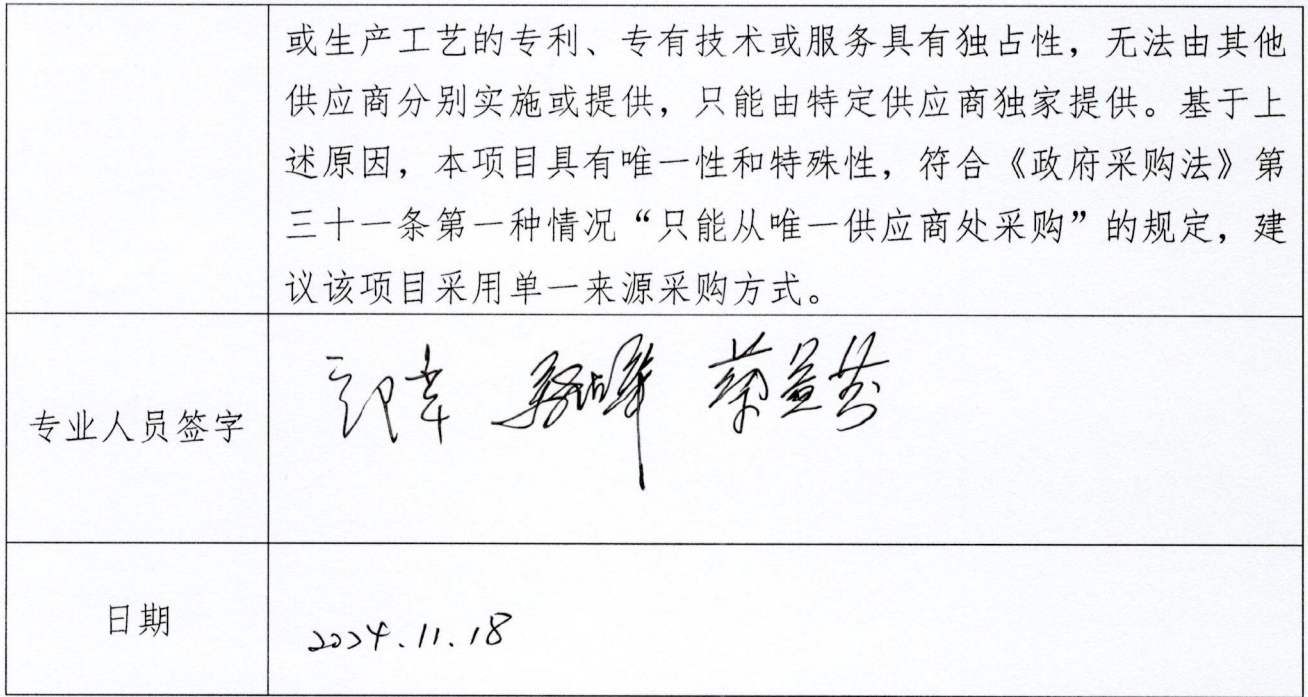 或生产工艺的专利、专有技术或服务具有独占性，无法由其他
供应商分别实施或提供，只能由特定供应商独家提供。基于上
述原因，本项目具有唯一性和特殊性，符合《政府采购法》第
三十一条第一种情况“只能从唯一供应商处采购”的规定，建
议该项目采用单一来源采购方式。
专业人员签字
日期
2024.11.18